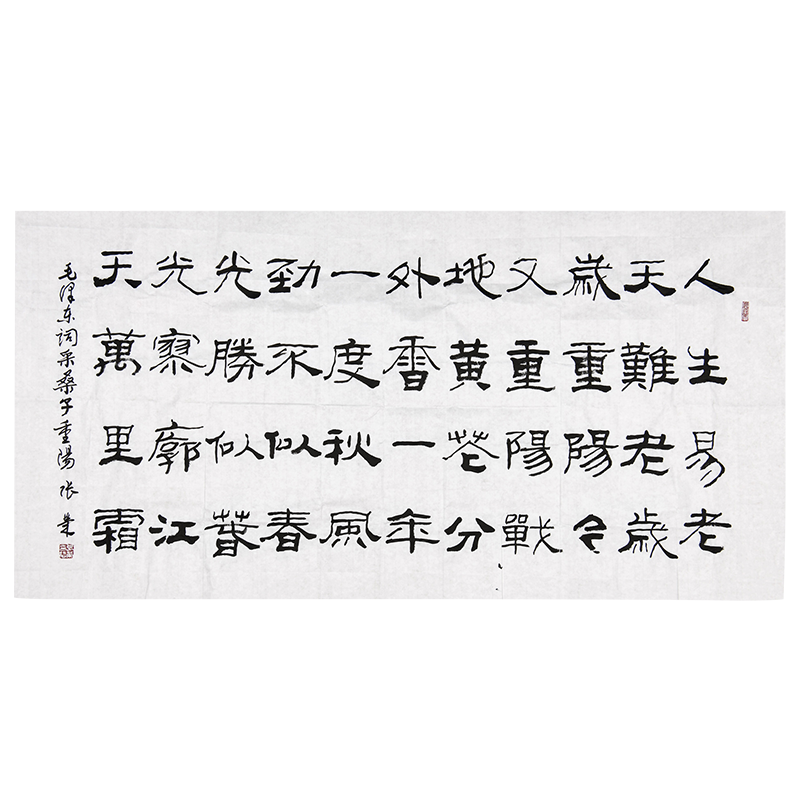 人生易老
天難老歲
歲重陽今
又重陽戰
地黃花分
外香一年
一度秋風
勁不似春
光勝似萅
光寥廓江
天萬里霜
毛澤東詞采桑子重陽 張